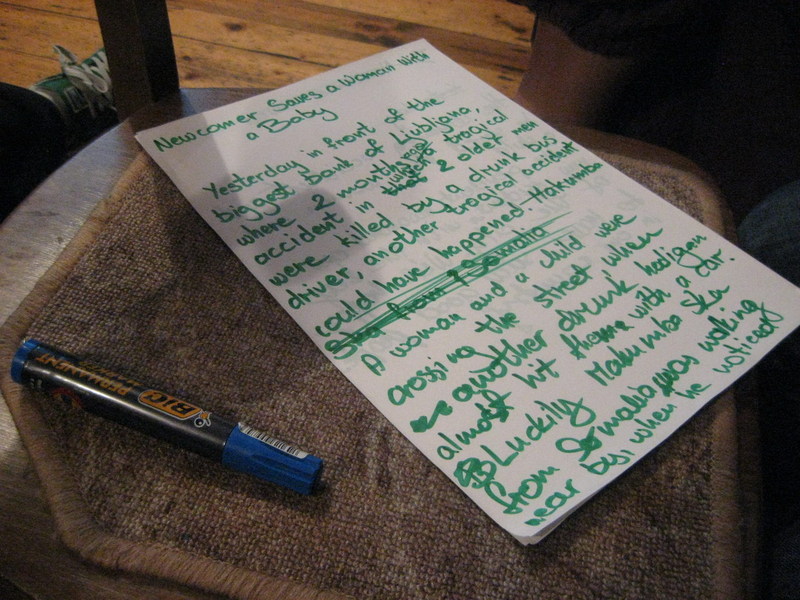 Newcomer Saves a Woman with
a Baby
Yesterday in front of the
biggest Bank of Ljubljana,
where 2 months ago tragical
accident in 2 oldet men
were killed by a drunk bus
driver, another tragical accident
could have happened. Makumba
from Somalia
A woman and a child were
crossing the street when
another drunk hooligan
almost hit theme with a car.
Luckily Makumba Skn
from Somalia was walking
near by, when he noticed
BIC
PERMANENT